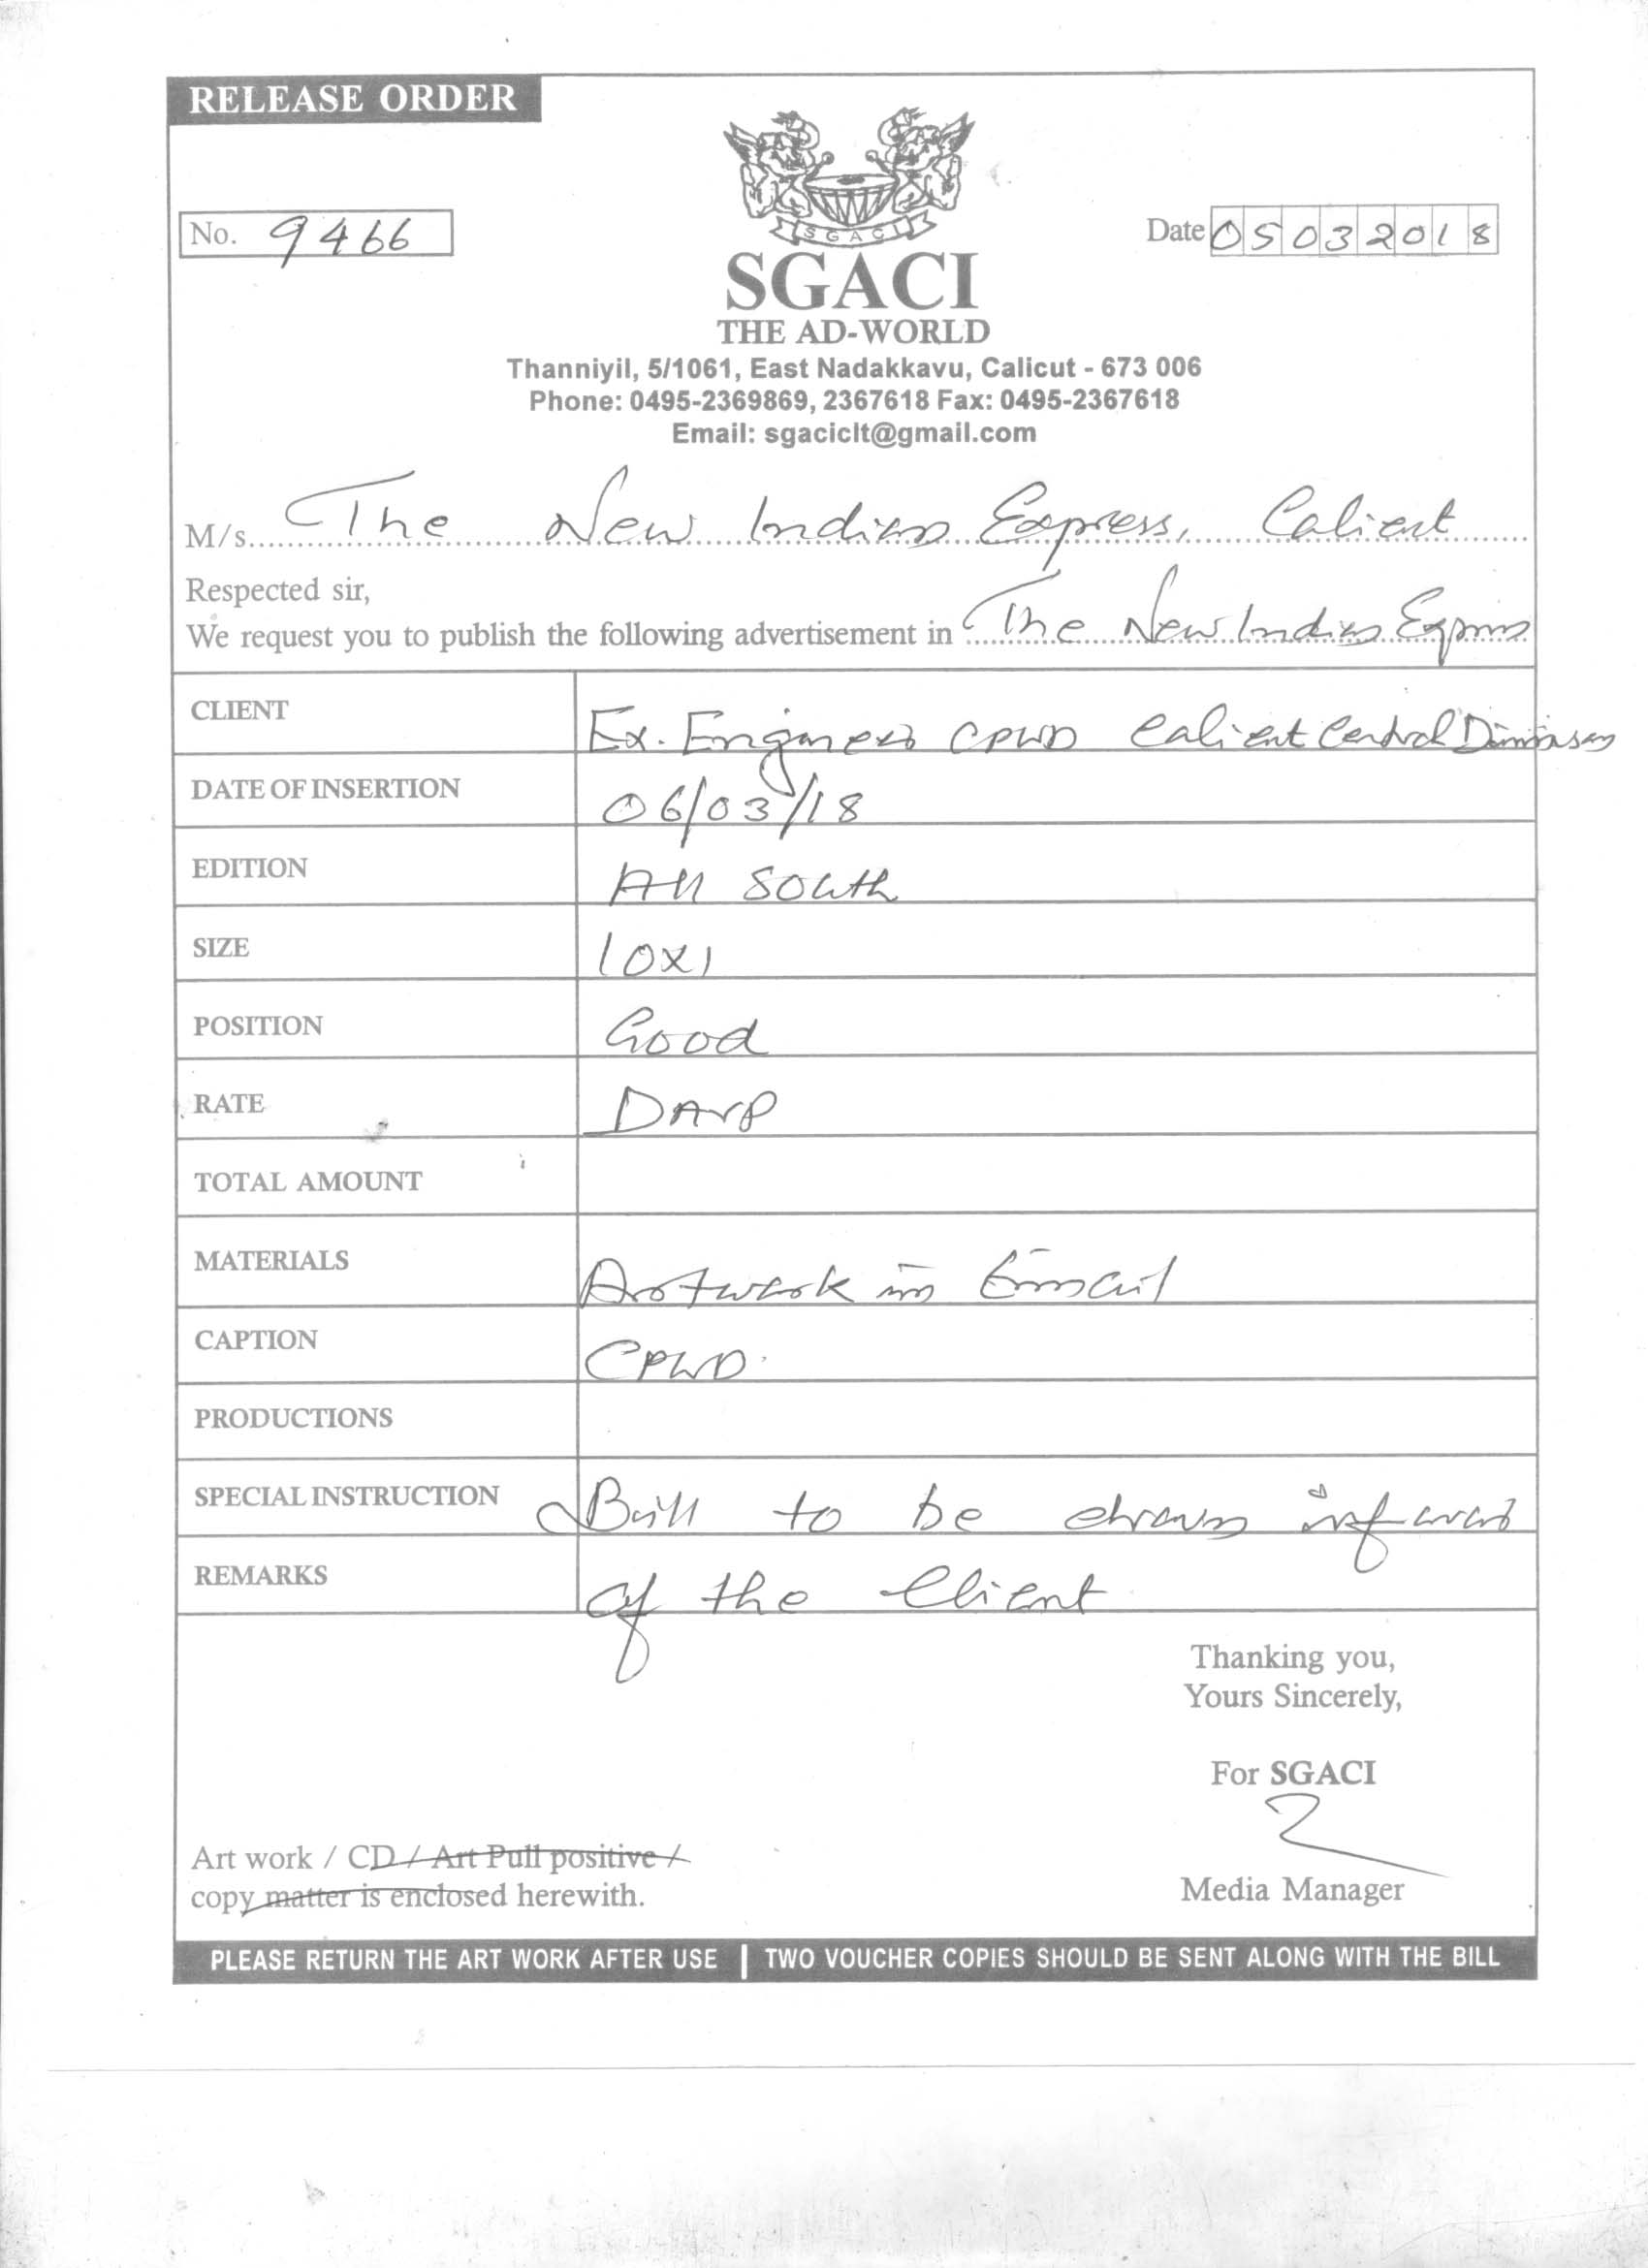 RELEASE ORDER
No. 9466
SGACI
Date 05032018
SGACI
THE AD-WORLD
Thanniyil, 5/1061, East Nadakkavu, Calicut - 673 006
Phone: 0495-2369869, 2367618 Fax: 0495-2367618
Email: sgaciclt@gmail.com
M/s. The New Indian Express, Calicut
Respected sir,
We request you to publish the following advertisement in The New Indian Express
CLIENT Ex. Engineer CPWD Calicut Central Division
DATE OF INSERTION 06/03/18
EDITION All South
SIZE 10x1
POSITION Good
RATE DAVP
TOTAL AMOUNT
MATERIALS Artwork in Email
CAPTION CPWD
PRODUCTIONS
SPECIAL INSTRUCTION Bill to be drawn infavour
REMARKS of the Client
Thanking you,
Yours Sincerely,
For SGACI
Art work / CD / Art Pull positive /
copy matter is enclosed herewith.
Media Manager
PLEASE RETURN THE ART WORK AFTER USE | TWO VOUCHER COPIES SHOULD BE SENT ALONG WITH THE BILL